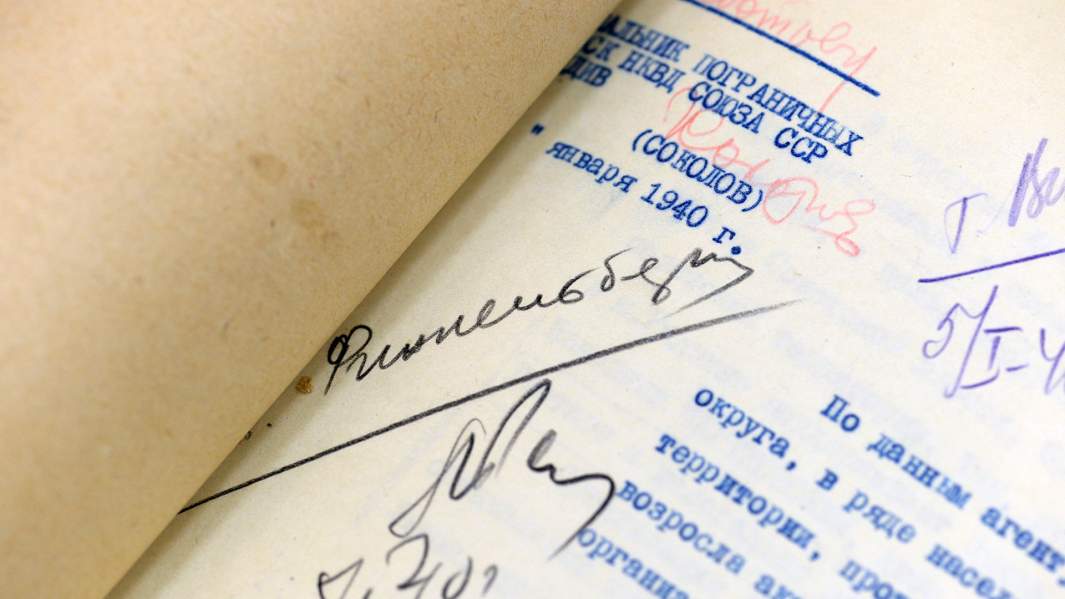 АЛЬНИК ПОГРАНИЧНЫХ
СК НКВД СОЮЗА ССР
ДИВ
(СОКОЛОВ)
" января 1940 г.
Копия
Финкельберг
5/I-4
По данным агент
округа, в ряде насел
территории, про
возросла ак
органи